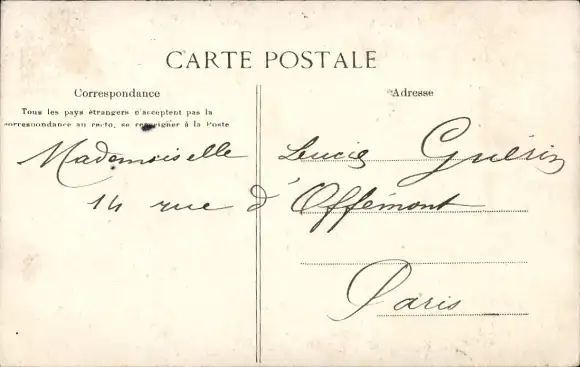 CARTE POSTALE
Correspondance
Adresse
Tous les pays étrangers n'acceptent pas la
correspondance au recto, se renseigner à la Poste
Mademoiselle Lucie Guérin
14 rue d'Offémont
Paris